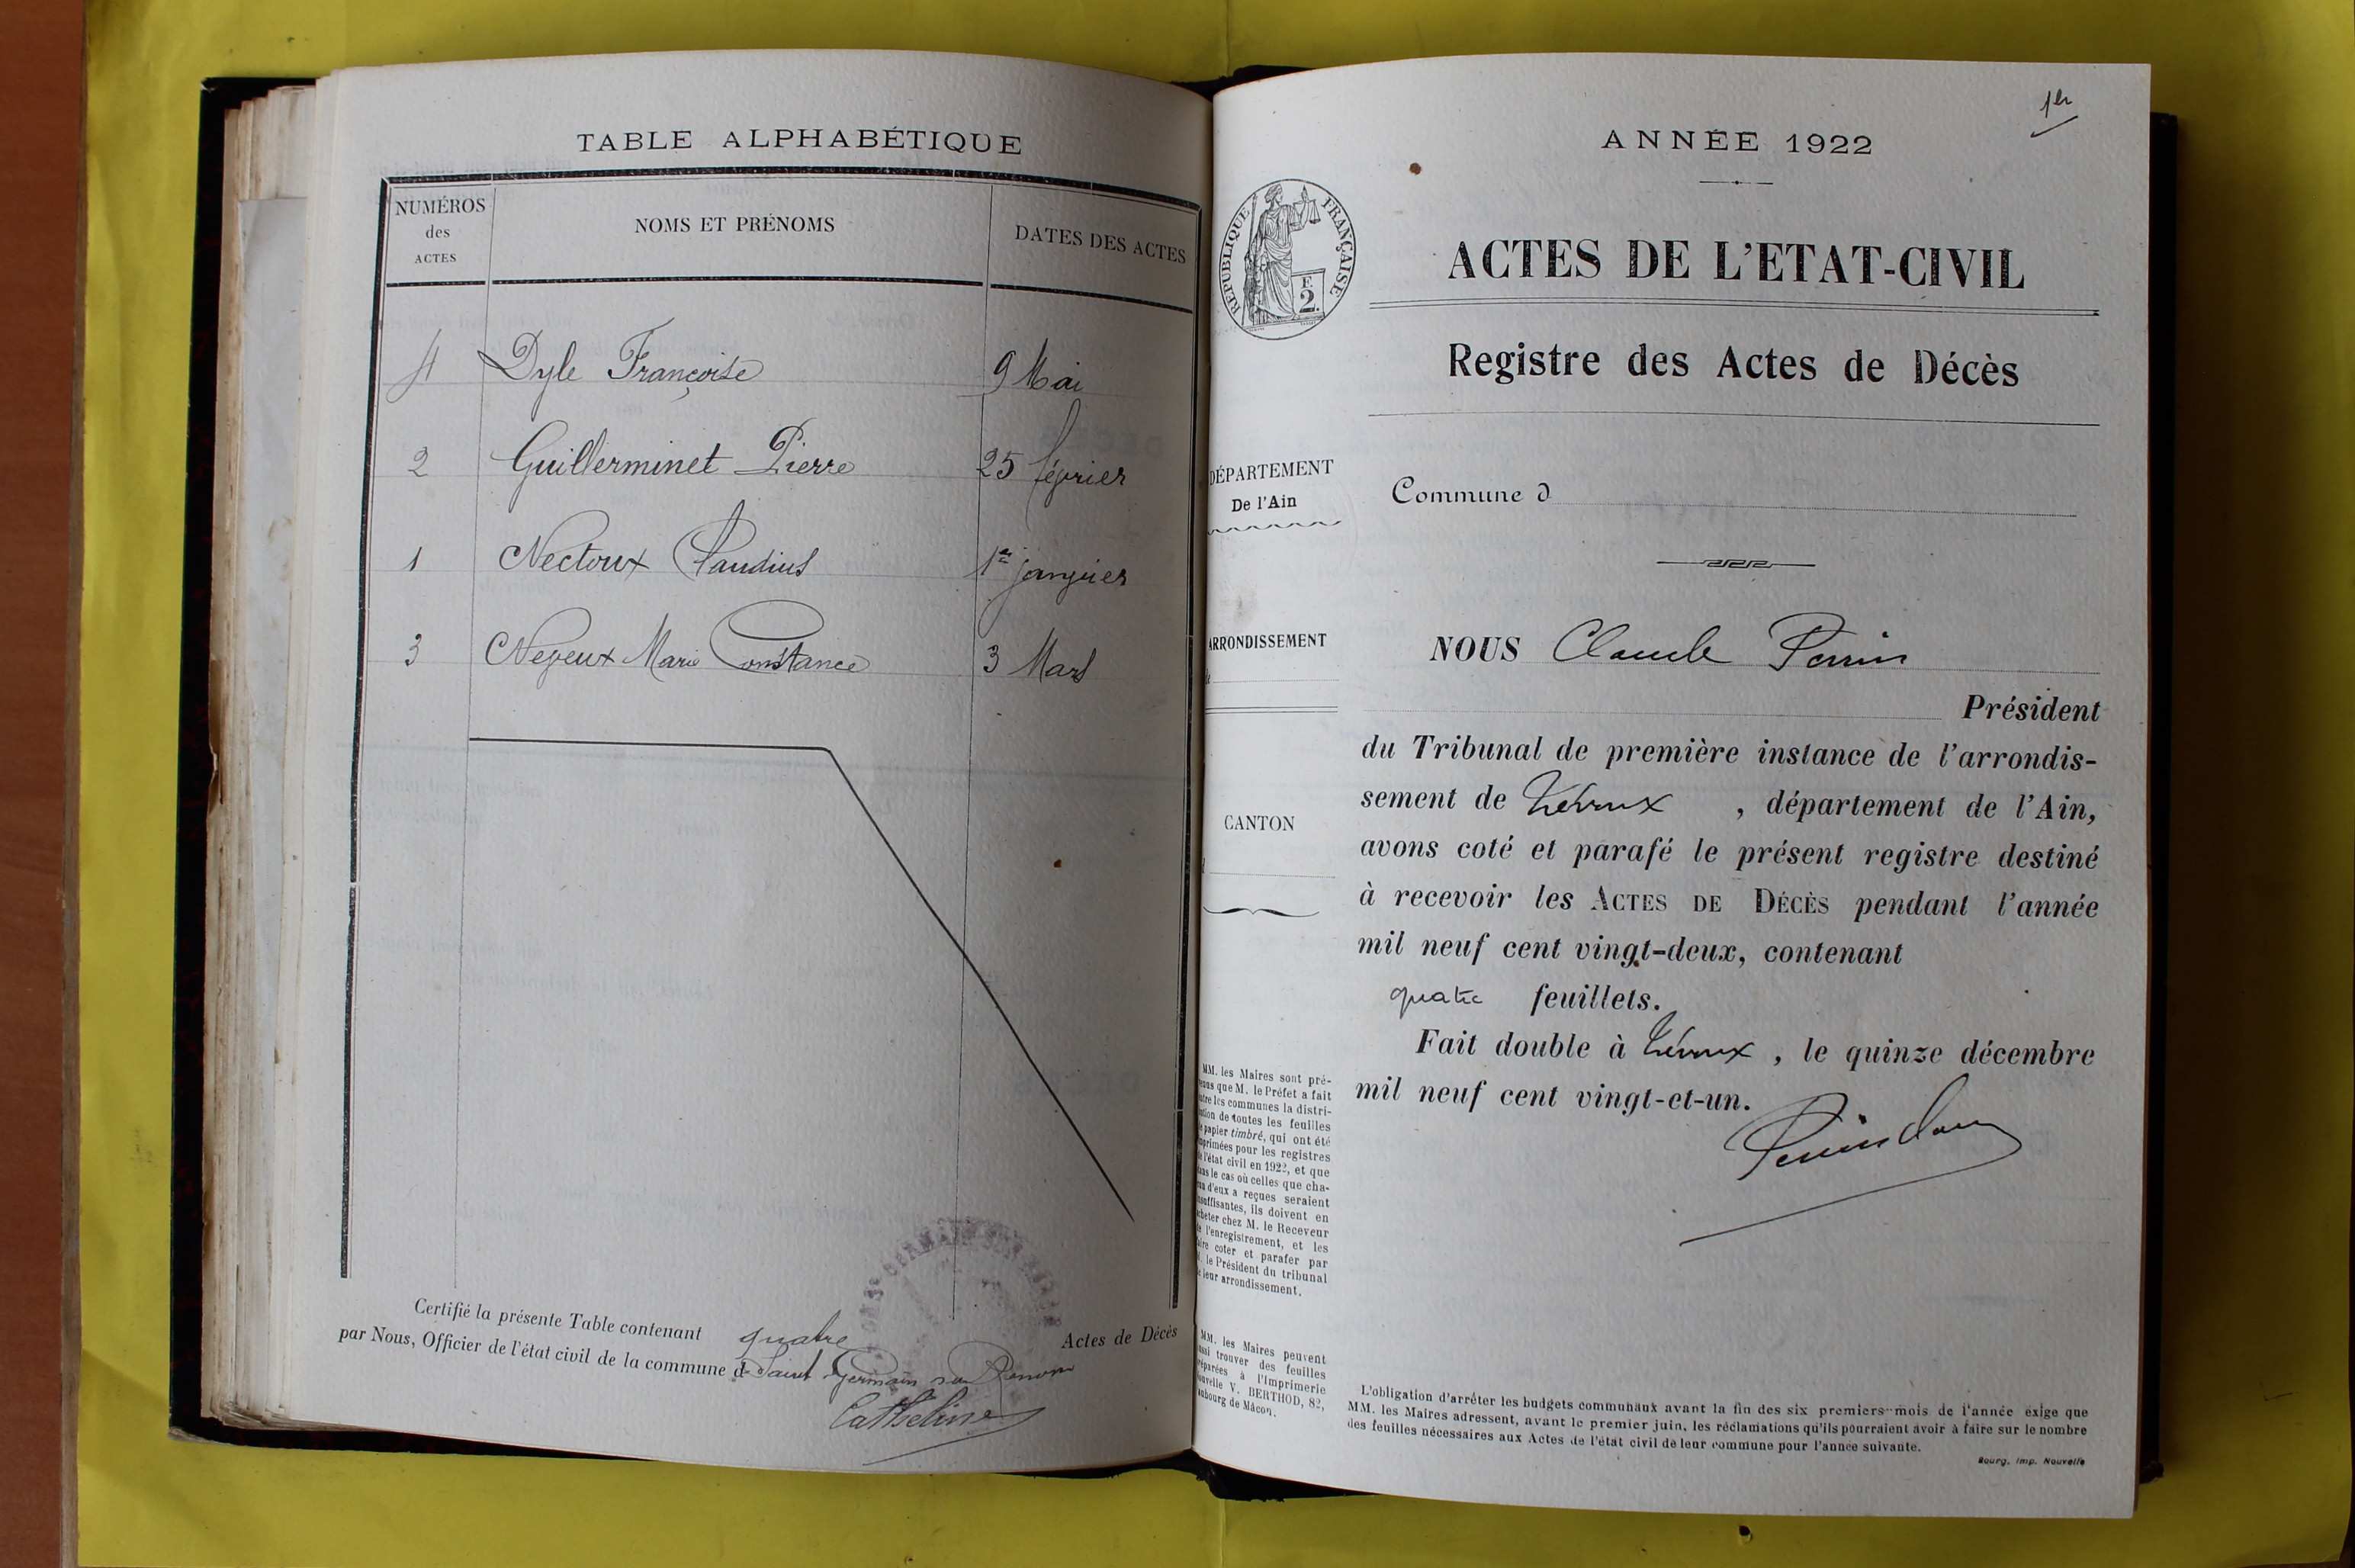 TABLE ALPHABÉTIQUE
NUMÉROS
des
ACTES
NOMS ET PRÉNOMS
DATES DES ACTES
4 Dyle Françoise 9 Mai
2 Guillerminet Pierre 25 février
1 Nectoux Claudius 1er janvier
3 Neveux Marie Constance 3 Mars
Certifié la présente Table contenant quatre Actes de Décès
par Nous, Officier de l'état civil de la commune de Saint Germain sur Renom
Cathelin
1er
ANNÉE 1922
RÉPUBLIQUE FRANÇAISE
F.
2.
ACTES DE L'ETAT-CIVIL
Registre des Actes de Décès
DÉPARTEMENT
De l'Ain
Commune d
ARRONDISSEMENT
CANTON
NOUS Claude Perrin
Président
du Tribunal de première instance de l'arrondis-
sement de Trévoux , département de l'Ain,
avons coté et parafé le présent registre destiné
à recevoir les ACTES DE DÉCÈS pendant l'année
mil neuf cent vingt-deux, contenant
quatre feuillets.
Fait double à Trévoux , le quinze décembre
mil neuf cent vingt-et-un.
MM. les Maires sont pré-
que M. le Préfet a fait
les communes la distri-
de toutes les feuilles
papier timbré, qui ont été
pour les registres
l'état civil en 1922, et que
le cas où celles que cha-
d'eux a reçues seraient
ils doivent en
chez M. le Receveur
l'enregistrement, et les
coter et parafer par
le Président du tribunal
leur arrondissement.
MM. les Maires peuvent
trouver des feuilles
à l'Imprimerie
V. BERTHOD, 82,
de Mâcon.
L'obligation d'arrêter les budgets communaux avant la fin des six premiers mois de l'année exige que
MM. les Maires adressent, avant le premier juin, les réclamations qu'ils pourraient avoir à faire sur le nombre
des feuilles nécessaires aux Actes de l'état civil de leur commune pour l'année suivante.
Bourg, Imp. Nouvelle